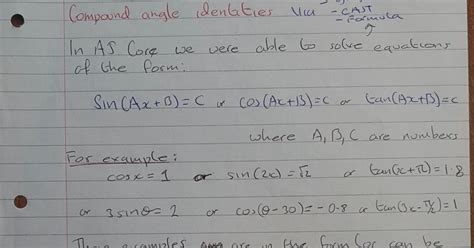 Compound angle identities via - CAST
- Formula
In AS Core we were able to solve equations
of the form:
Sin(Ax+B)=C or cos(Ax+B)=c or tan(Ax+B)=c
where A, B, C are numbers
For example:
cosx=1 or sin(2x)=√2 or tan(x+π)=1.8
or 3sinθ=2 or cos(θ-30)=-0.8 or tan(3x-π/2)=1
examples are in the form
can be